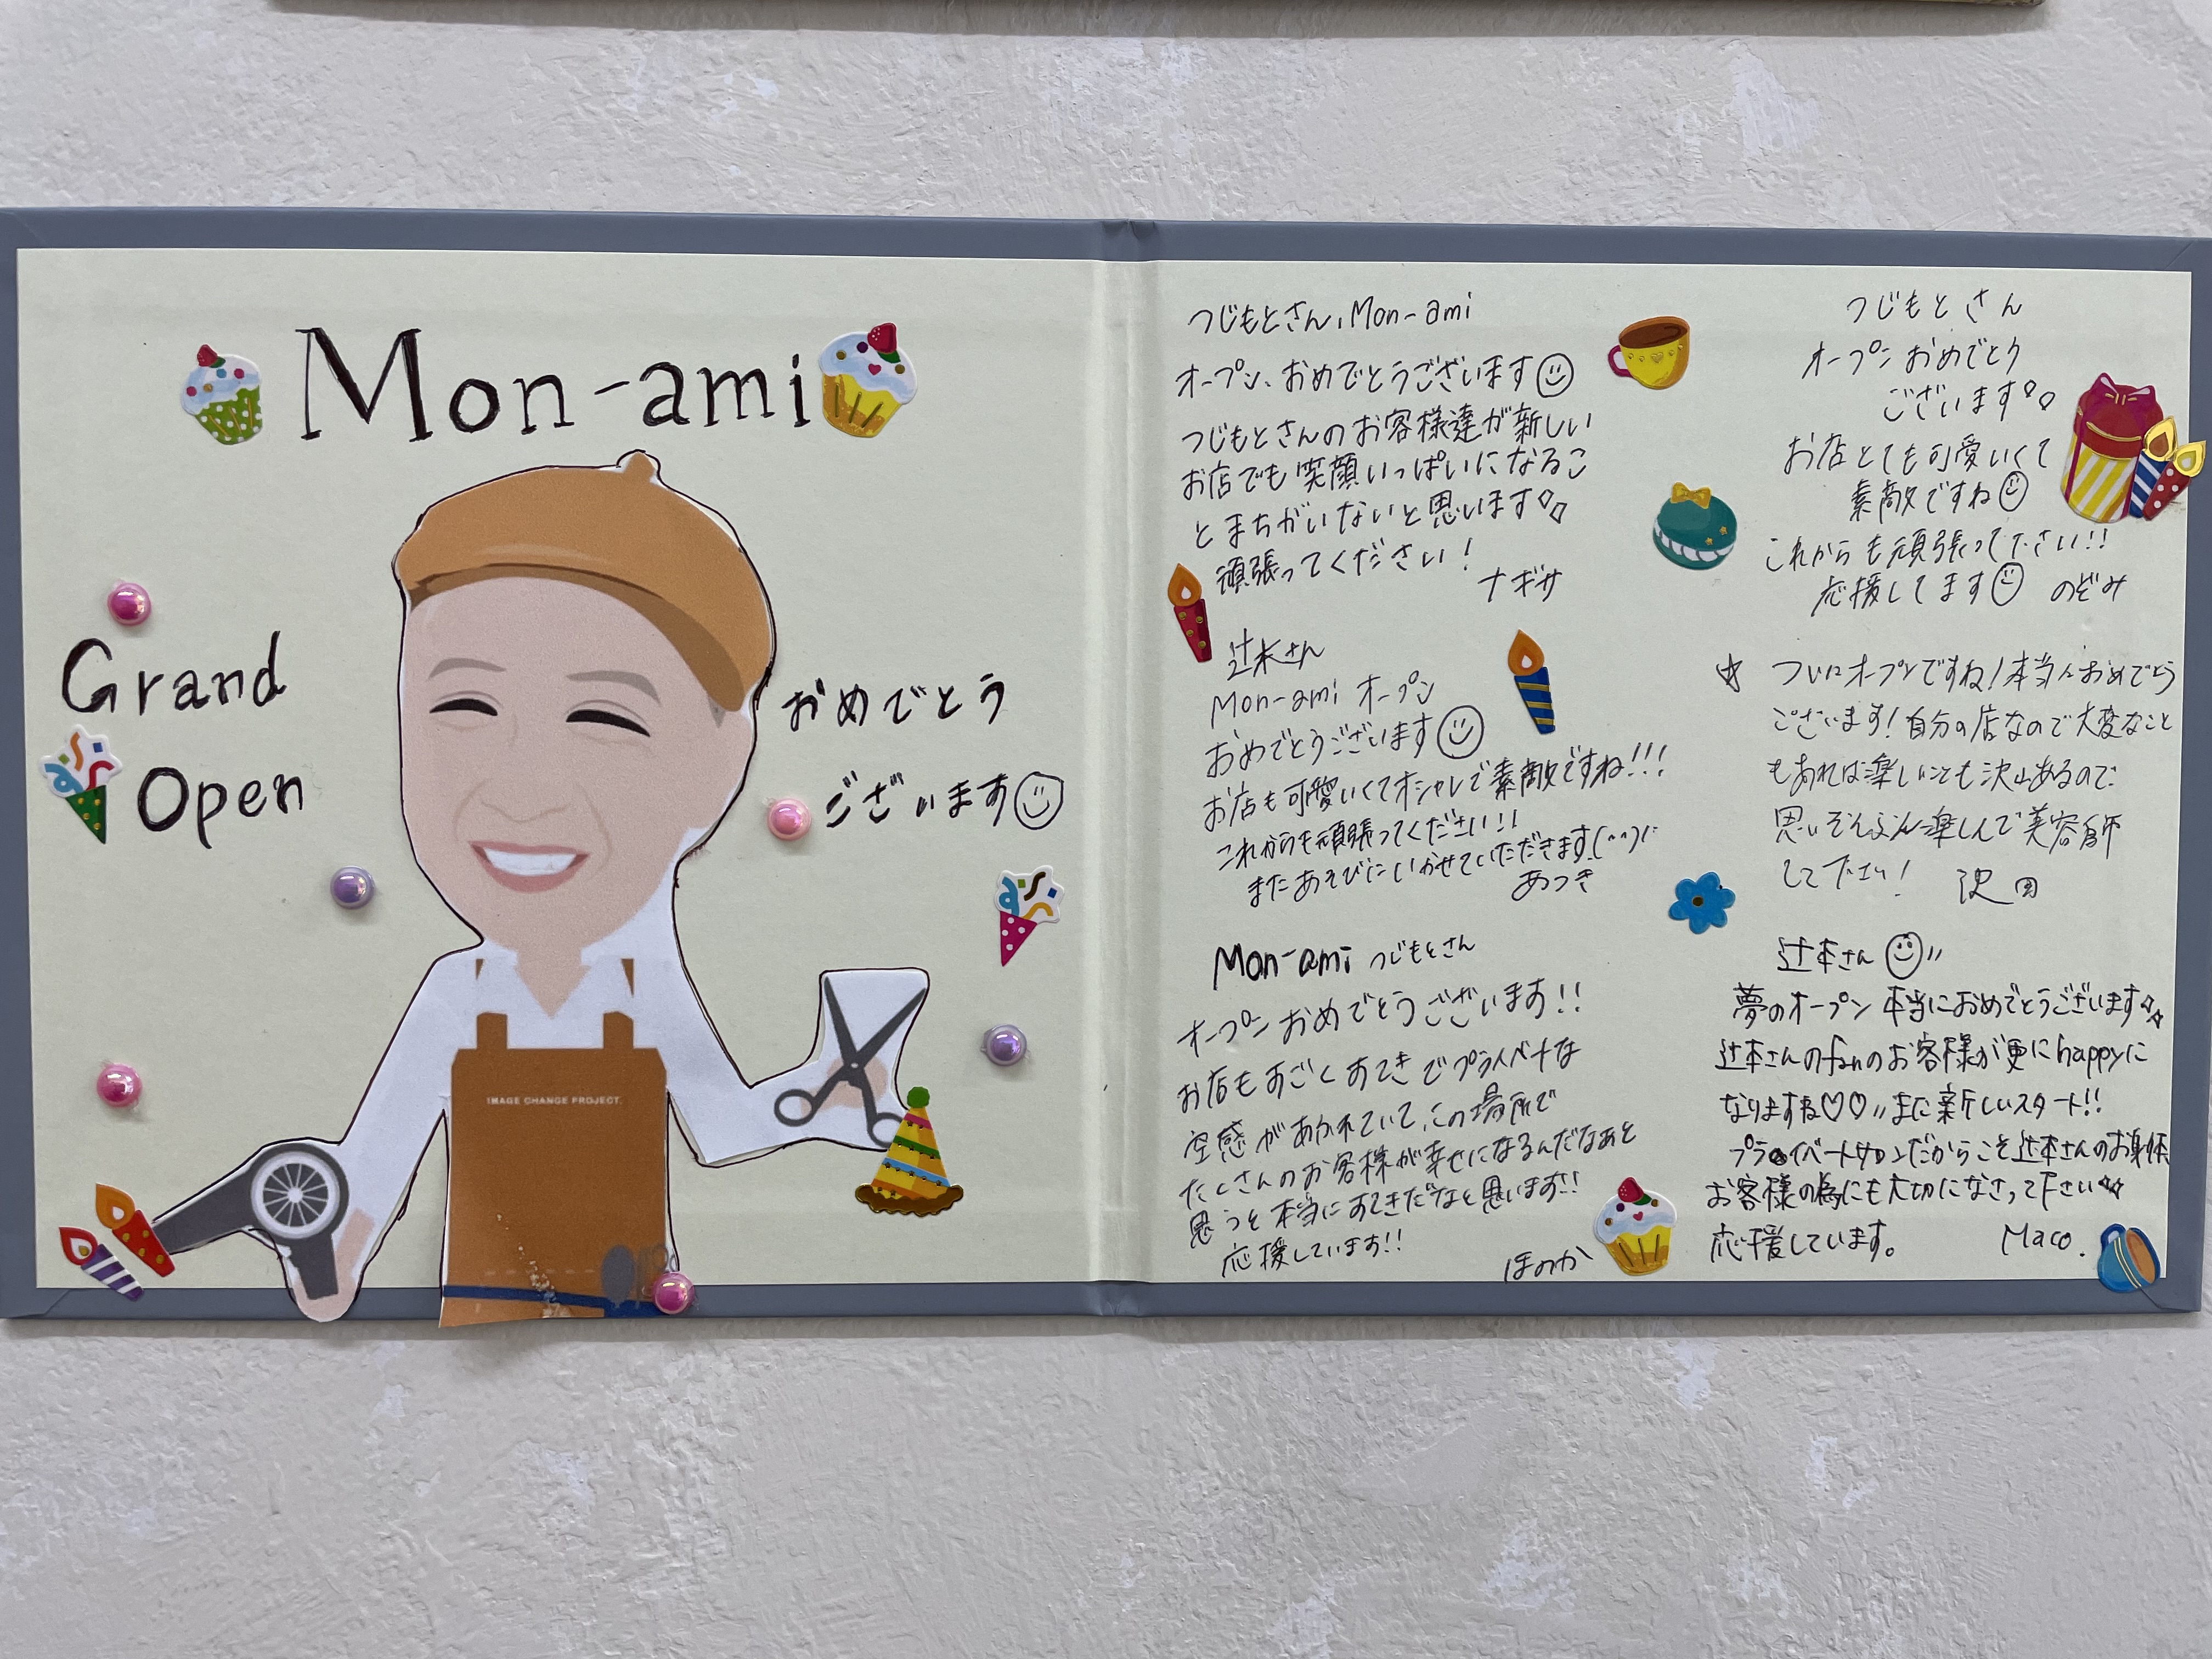 Mon-ami
Grand
Open
おめでとう
ございます
IMAGE CHANGE PROJECT.
つじもとさん、Mon-ami
オープン、おめでとうございます
つじもとさんのお客様達が新しい
お店でも笑顔いっぱいになるこ
とまちがいないと思います
頑張ってください!
ナギサ
辻本さん
Mon-ami オープン
おめでとうございます
お店も可愛いくてオシャレで素敵ですね!!!
これからも頑張ってください!!
またあそびにいかせていただきます
あつき
Mon-ami つじもとさん
オープンおめでとうございます!!
お店もすごくすてきでプライベートな
空感があふれていて、この場所で
たくさんのお客様が幸せになるんだなぁと
思うと本当にすてきだなと思います!!
応援しています!!
ほのか
つじもとさん
オープンおめでとう
ございます
お店とても可愛いくて
素敵ですね
これからも頑張って下さい!!
応援してます
のぞみ
☆ ついにオープンですね!本当におめでとう
ございます!自分の店なので大変なこと
もあれば楽しいことも沢山あるので、
思いぞんぶん楽しんで美容師
して下さい!
沢田
辻本さん
夢のオープン 本当におめでとうございます
辻本さんのfanのお客様が更にhappyに
なりますね♡♡〃また新しいスタート!!
プライベートサロンだからこそ辻本さんのお身体
お客様の為にも大切になさって下さい
応援しています。
Maco.